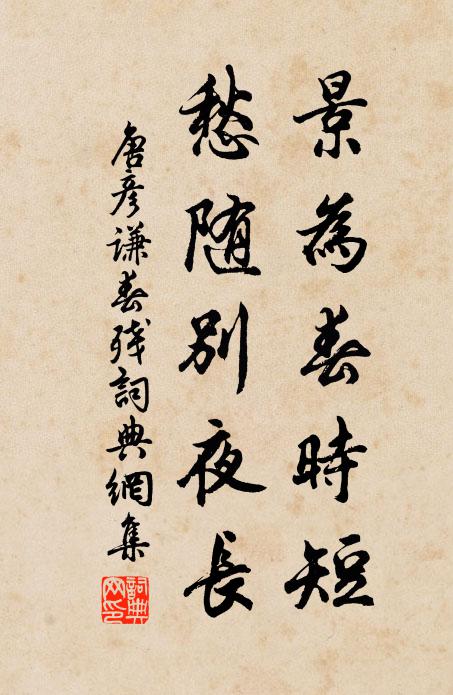 景為春時短
愁隨別夜長
唐彥謙春殘詞典網集
詞典網印